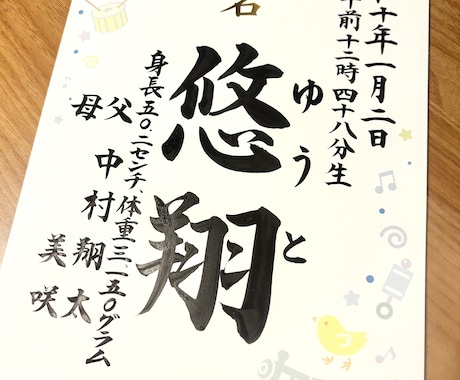 十年一月二日
午前十二時四十八分生
名
悠翔
ゆうと
身長五〇.二センチ、体重三一五〇グラム
父 中村 翔太
母 美咲